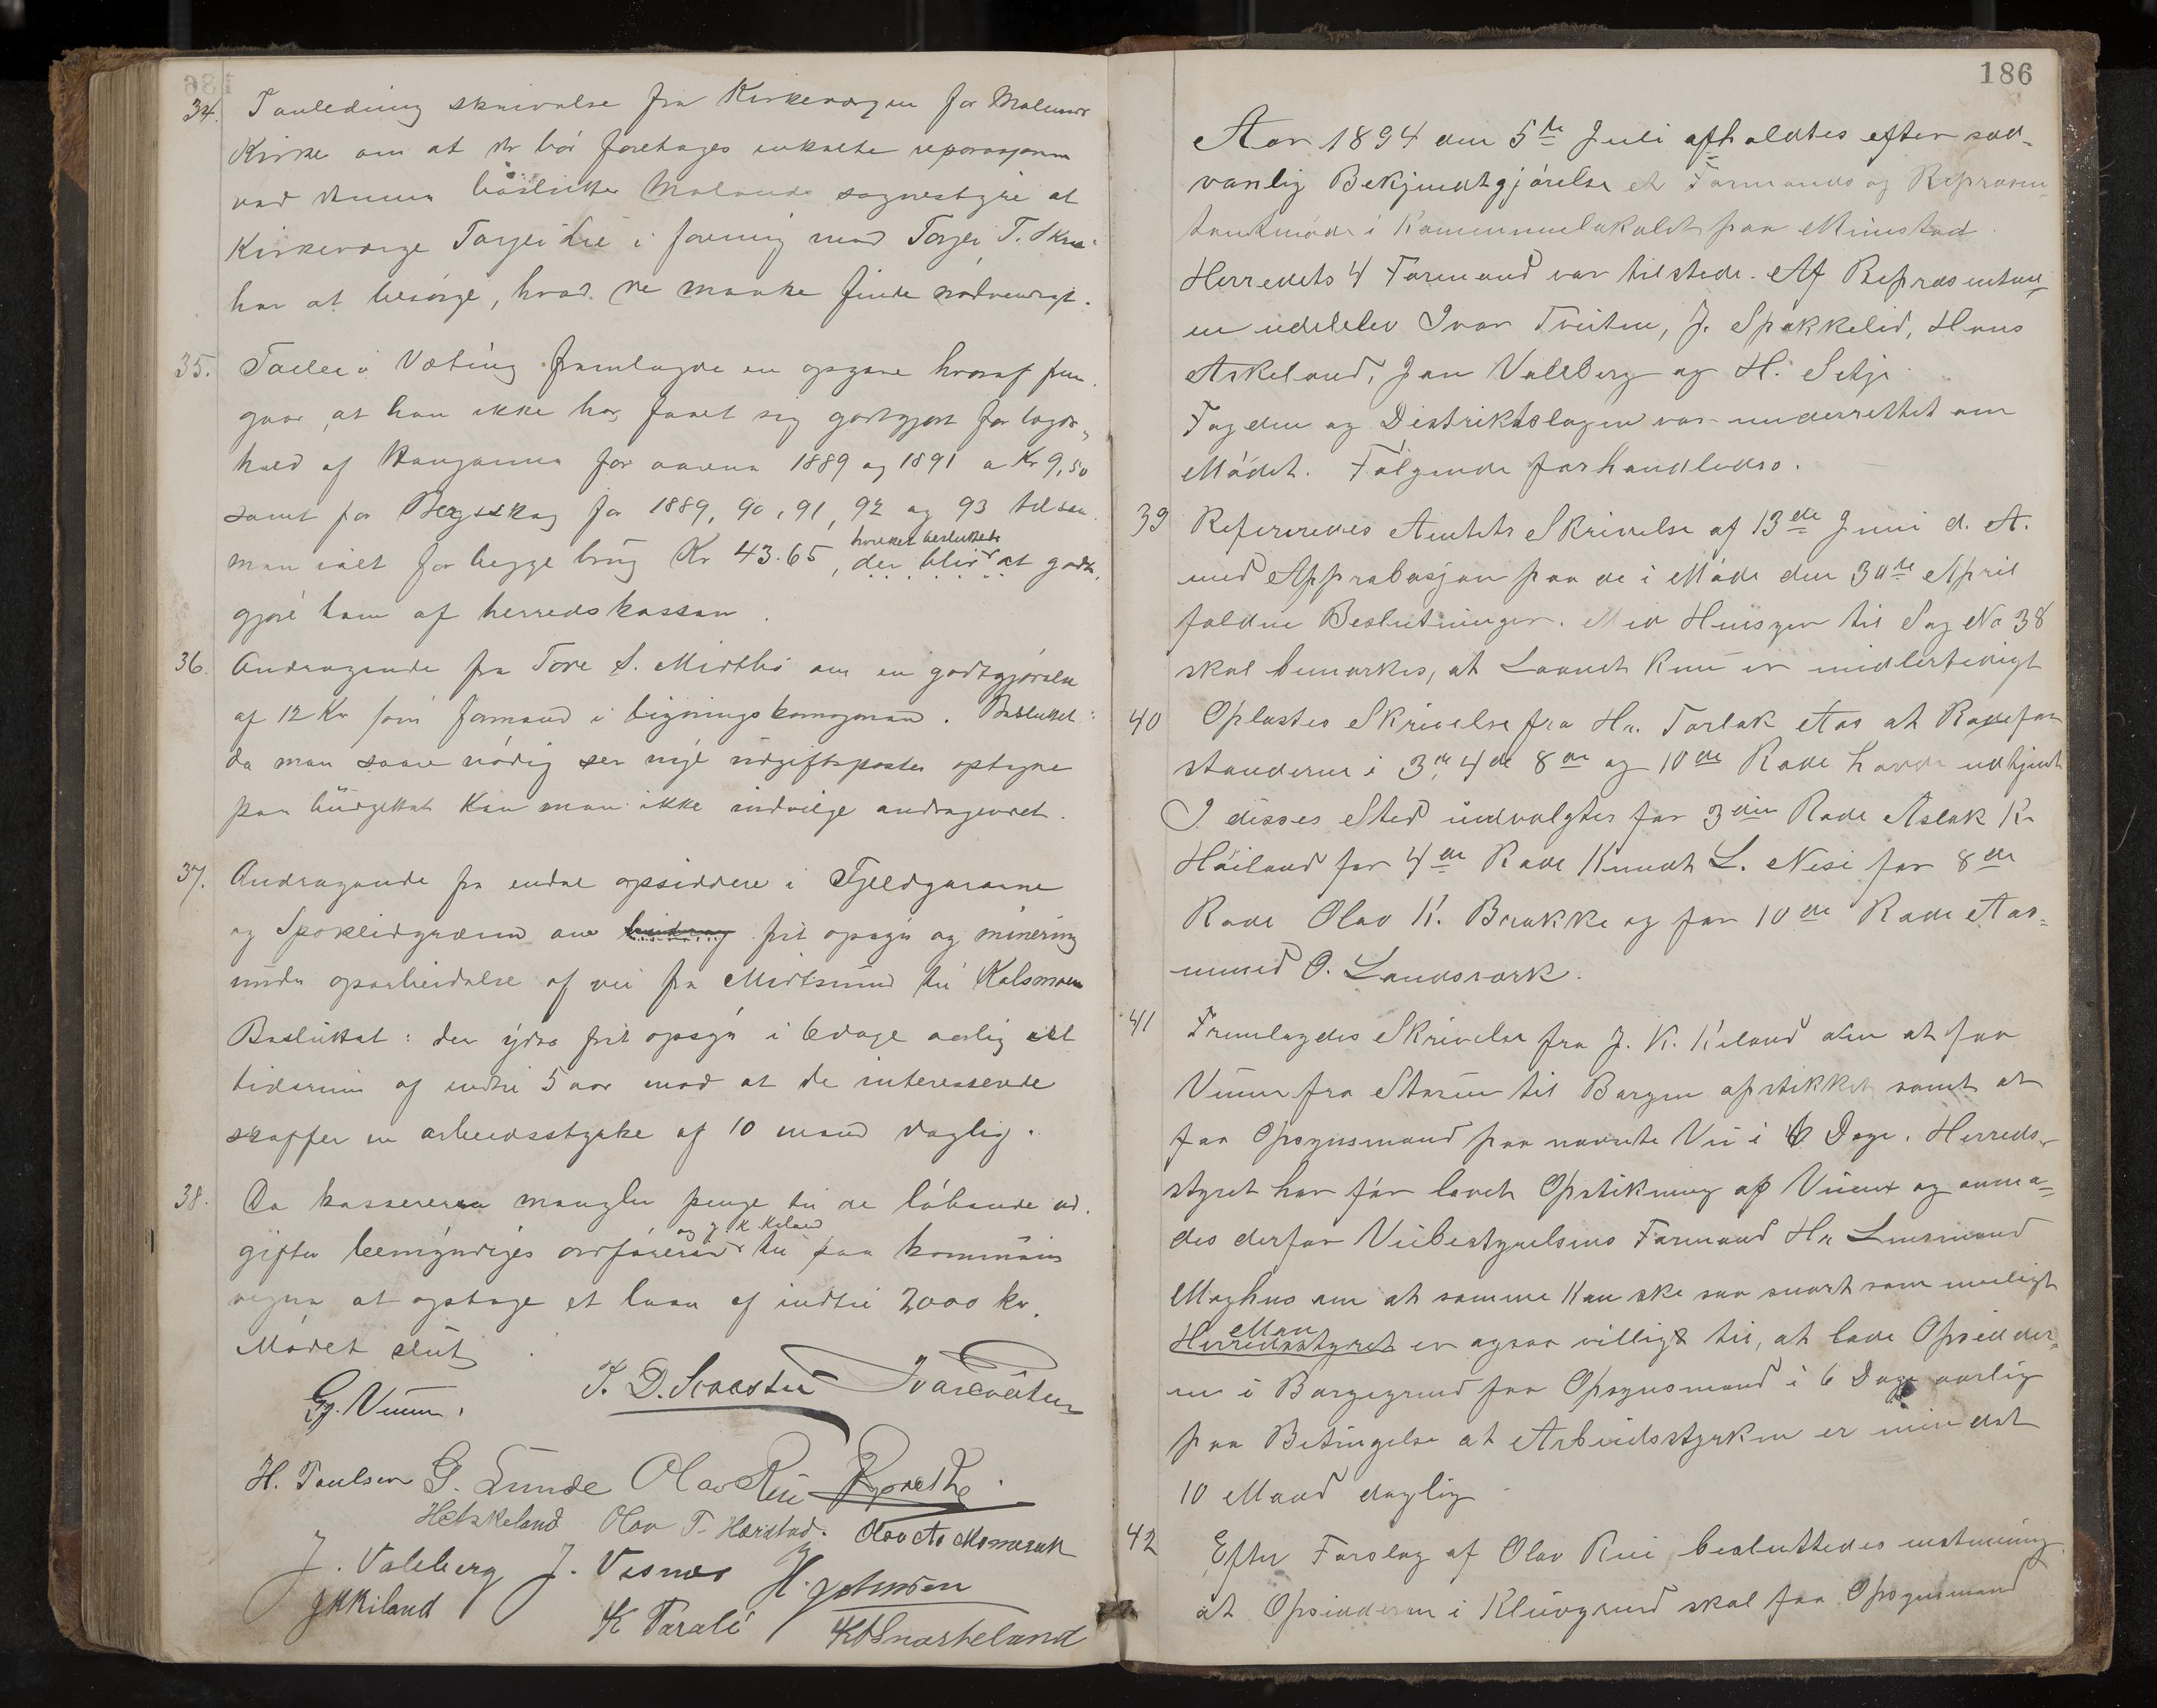 34. I anledning skrivelse fra Kirkevergen for Molands
Kirke om at der bör foretages enkelte reparasjoner
ved denne besluttes Molands sognestyre at
Kirkeverge Torjei Lie i forening med Torjei T. Skree
har at besörge, hvad de maatte finde nödvendigt.
35. Tarlei Veting fremlagde en opgave hvoraf frem
gaar, at han ikke har faaet sig godtgjort for vegved
hold af Haugannen for aarene 1889 og 1891 a Kr 9,50
samt for Bergsskog for 1889, 90, 91, 92 og 93 tilsam
men ialt for begge brug Kr 43.65, der blir at godt
hvilket besluttedes
gjöre ham af herredskassen.
36. Andragende fra Tore S. Midtbö om en godtgjörelse
af 12 Kr som formand i ligningskomisjonen. Besluttet:
da man saare nödig ser nye udgiftsposter optagne
paa budgettet kan man ikke indvilge andragendet.
37. Andragende fra endel opsiddere i Fjeldgaarane
og Spokleidgrænd om bidrag frit opsyn og minering
under oparbeidelse af vei fra Midtsund til Kolsmoen
Besluttet: der ydes frit opsyn i 6 dage aarlig ialt
tiderum af indtil 5 aar mod at de interesserede
skaffer en arbeidsstyrke af 10 mand daglig.
38. Da kassereren mangler penge til de löbende ud
gifter bemyndiges ordföreren til paa kommunens
og J. K. Kiland
vegne at optage et laan af indtil 2000 kr.
Mödet slut
Gj. Vinn. T. D. Scaasten Ivar Tveiten
H. Paulsen G. Lunde Olav Rui
H Askeland Olav T. Harstad. Olav As Momrak
J. Valeberg J. Vesnes H. Johnsen
J K Kiland K Tarali K O Snarteland
186
Aar 1894 den 5te Juli afholdtes efter sæd-
vanlig Bekjendtgjörelse et Formands og Repræsen
tantmöde i Kommunelokalet paa Kinstad.
Herredets 4 Formænd var tilstede. Af Repræsentan
er udeblev Ivar Tveiten, J. Spokkelid, Hans
Askeland, Jan Valeberg og H. Setje.
Fogden og Distriktslægen var underrettet om
Mödet. Fölgende forhandledes.
39 Refereredes Amtets Skrivelse af 13de Juni d. A.
med Approbasjon paa de i Möde den 30te April
faldne Beslutninger. Med Hensyn til Sag No 38
skal bemærkes, at Laanet kun er midlertidigt
40 Oplæstes Skrivelse fra Hr. Tarlak Aas at Rodefor
standerne i 3de, 4de 8de og 10de Rode havde udtjent
I disses Sted udvalgtes for 3die Rode Aslak K.
Höiland for 4de Rode Knudt L. Nesi for 8de
Rode Olav K. Brokke og for 10de Rode Aas-
mund O. Landsverk.
41 Fremlagdes Skrivelse fra J. K. Kiland om at faa
Veien fra Staien til Borgen opstikket samt at
faa Opsynsmand paa nævnte Vei i 6 Dage. Herreds-
styret har för lovet Opstikning af Veien og anmo-
des derfor Veibestyrelsens Formand Hr. Lensmand
Moghus om at samme kan ske saa snart som muligt
Man
Herredsstyret er ogsaa villigt til, at lade Opsidder
ne i Borgegrend faa Opsynsmand i 6 Dage aarlig
paa Betingelse at Arbeidsstyrken er mindst
10 Mand daglig
42 Efter Forslag af Olav Rui besluttedes enstemmig
at Opsidderne i Kleivgrend skal faa Opsynsmand